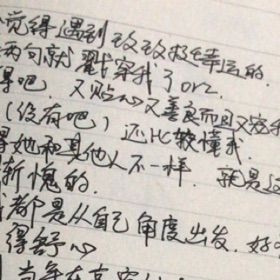 觉得遇到玫玫挺幸运的.
两句就戳穿我了orz.
得吧. 又贴心又善良而且又
(没有吧) 还比较懂我.
得她和其他人不一样. 就是
惭愧的.
都是从自己角度出发. 好
得舒心